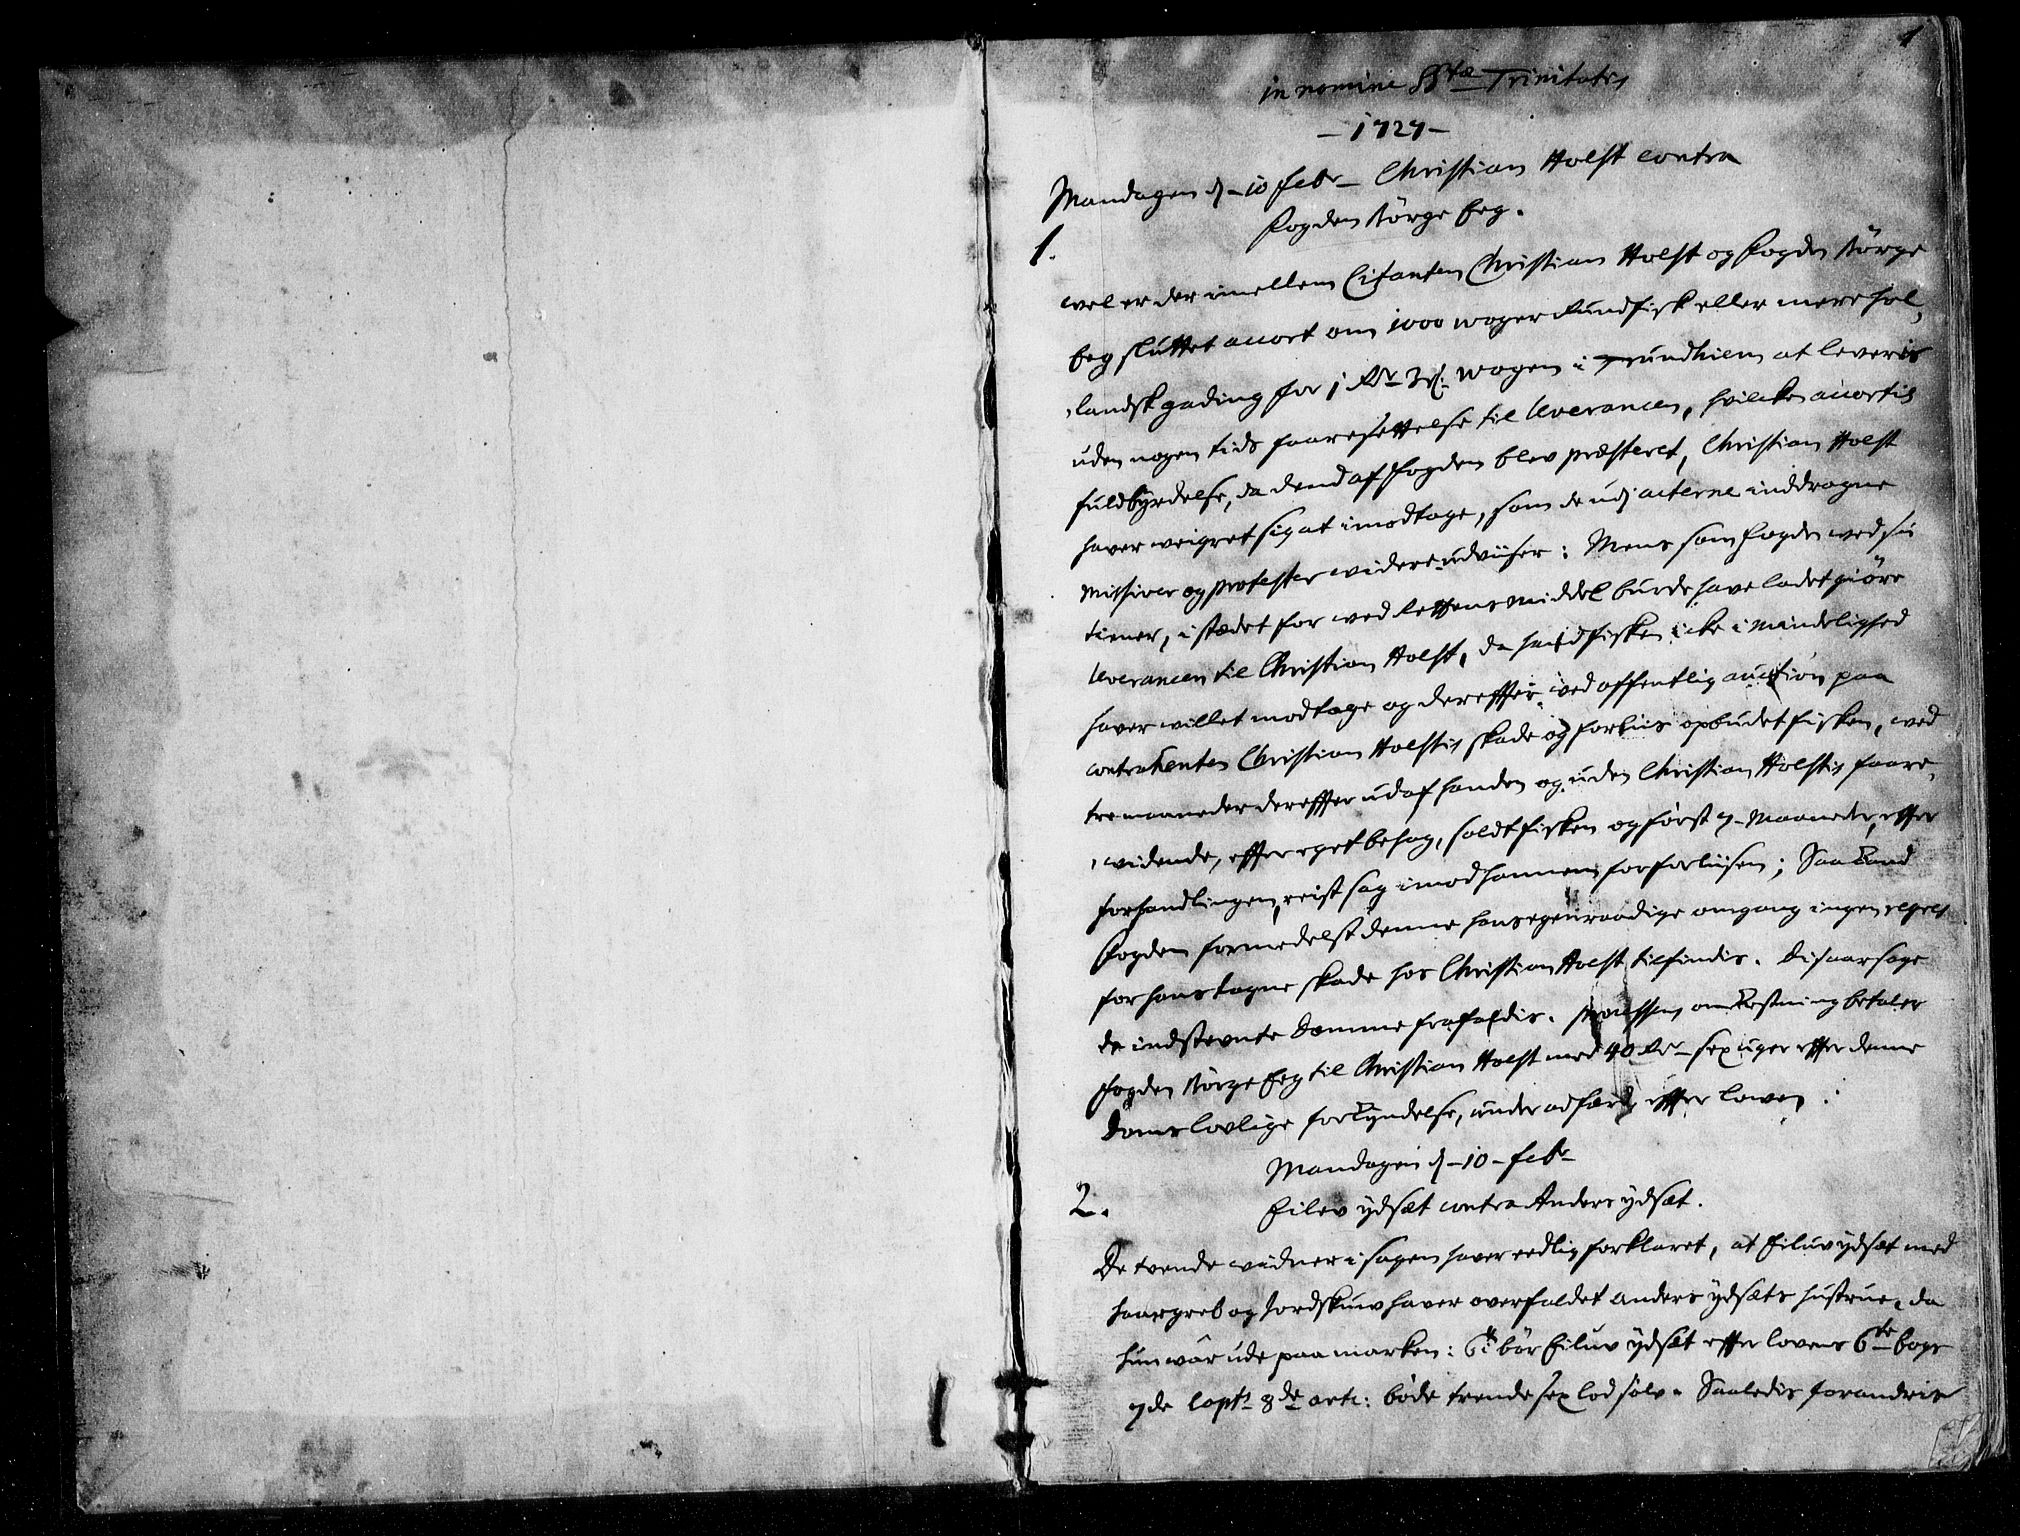 1
in nomine SStæ Trinitatis
- 1727 -
Mandagen d - 10 febr - Christian Holst contra
fogden Sörge beg.
1.
wel er der imellem Citanten Christian Holst og fogden Sörge
beg sluttet accort om 1000 woger Rundfisk eller mere hol,
,landsk gading for 1 Rdr 3 wogen i Trundhiem at leveris
uden nogen tids foresettelse til leverancen, hvilken accortis
fuldbyrdelse, da dend af fogden blev præsteret, Christian Holst
haver weigret sig at imodtage, som de udj acterne inddragne
Missiver og protester widere udviiser: Mens som fogden ved sin
tiener, i stædet for wed Rettens middel burde have ladet giöre
leverancen til Christian Holst, da hand fisken icke i Mindelighed
haver willet modtage og dereffter wed offentlig auction paa
contrahenten Christian Holstis skade og forliis opbudet fisken, wed
tre maaneder dereffter ud af handen og uden Christian Holstis faare,
,widende, effter eget behag, soldt fisken og först 7 - Maaneder effter
forhandlingen, reist sag imod hannem for forliisen; Saa kand
fogden formedelst denne hans egenraadige omgang ingen regres
for hans tagne skade hos Christian Holst tilfindis. Disaarsage
de indstevnte Domme frafaldis. Processens omkostning betaler
fogden Sörge beg til Christian Holst med 40 Rdr - sex uger effter denne
Doms lovlige forkyndelse, under adfærd effter lowen.
Mandagen d - 10 - febr
2.
Eilev ydsæt contra Anders ydsæt.
De tvende widner i sagen haver eedlig forklaret, at Eiluv ydsæt med
haargreb og Jordskuv haver overfaldet anders ydsæts hustrue, da
hun wâr ude paa marken: bör Eiluv ydsæt effter lovens 6te bogs
7de Capts 8de artc: böde trende sex lod sölv. Saaledis forandris